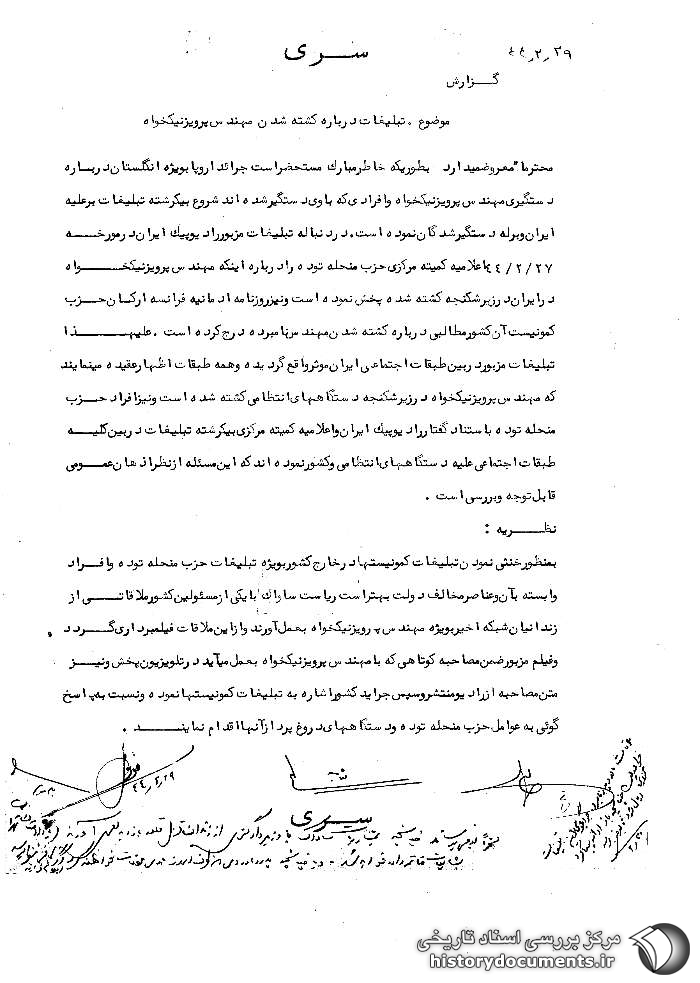 سری
۴۴٫۲٫۲۹
گزارش
موضوع . تبلیغات درباره کشته شدن مهندس پرویز نیکخواه
محترما" معروضمیدارد بطوریکه خاطر مبارک مستحضر است جرائد اروپا بویژه انگلستان درباره
دستگیری مهندس پرویز نیکخواه و افرادی که با وی دستگیر شده اند شروع بیکرشته تبلیغات برعلیه
ایران و برله دستگیر شدگان نموده است. در دنباله تبلیغات مزبور رادیو پیک ایران در مورخه
۴۴/۲/۲۷ اعلامیه کمیته مرکزی حزب منحله توده را درباره اینکه مهندس پرویز نیکخواه
در ایران در زیر شکنجه کشته شده پخش نموده است و نیز روزنامه اومانیه فرانسه ارکان حزب
کمونیست آن کشور مطالبی درباره کشته شدن مهندس نامبرده درج کرده است . علیهذا
تبلیغات مزبور در بین طبقات اجتماعی ایران موثر واقع گردیده و همه طبقات اظهار عقیده مینمایند
که مهندس پرویز نیکخواه در زیر شکنجه دستگاههای انتظامی کشته شده است و نیز افراد حزب
منحله توده با ستناد گفتار رادیو پیک ایران و اعلامیه کمیته مرکزی بیکرشته تبلیغات در بین کلیه
طبقات اجتماعی علیه دستگاههای انتظامی و کشور نموده اند که این مسئله از نظر اذهان عمومی
قابل توجه و بررسی است .
نظریه :
بمنظور خنثی نمودن تبلیغات کمونیستها در خارج کشور بویژه تبلیغات حزب منحله توده و افراد
وابسته بآن و عناصر مخالف دولت بهتر است ریاست ساواک با یکی از مسئولین کشور ملاقاتی از
زندانیان شبکه اخیر بویژه مهندس پرویز نیکخواه بعمل آورند و از این ملاقات فیلمبرداری گردد
و فیلم مزبور ضمن مصاحبه کوتاهی که با مهندس پرویز نیکخواه بعمل میآید در تلویزیون پخش و نیز
متن مصاحبه از رادیو منتشر و سپس جراید کشور اشاره به تبلیغات کمونیستها نموده و نسبت به پاسخ
گوئی به عوامل حزب منحله توده و دستگاههای دروغ پرداز آنها اقدام نمایند .
۴۴٫۲٫۲۹
سری
مرکز بررسی اسناد تاریخی
historydocuments.ir